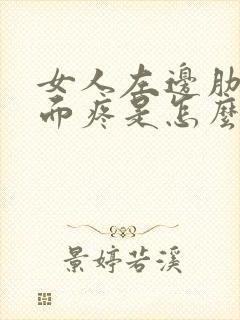 女人左邊肋
而疼是怎麼
景婷若溪